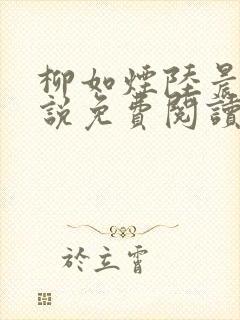 柳如煙陸晨
說免費閱讀
於立霄